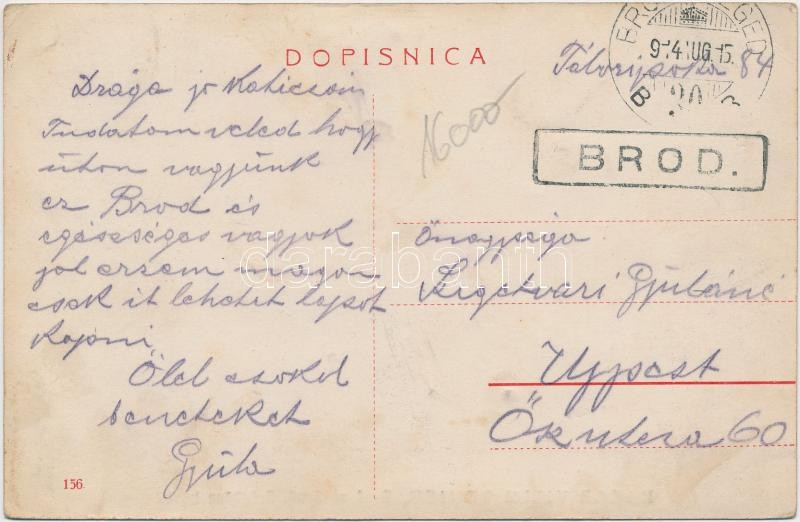 DOPISNICA
Drága jo Katicsám
Tudatom veled hogy
úton vagyunk
ez Brod és
egésséges vagyok
jol erzem magan
csek it lehetet lapot
kapni
Ölel csokol
beneteket
Gyula
156.
16000
914 AUG. 15.
Tábori posta 84
BROD.
Önagysága
Szigetvári Gyuláné
Ujpest
Ők utcza 60
darabanth